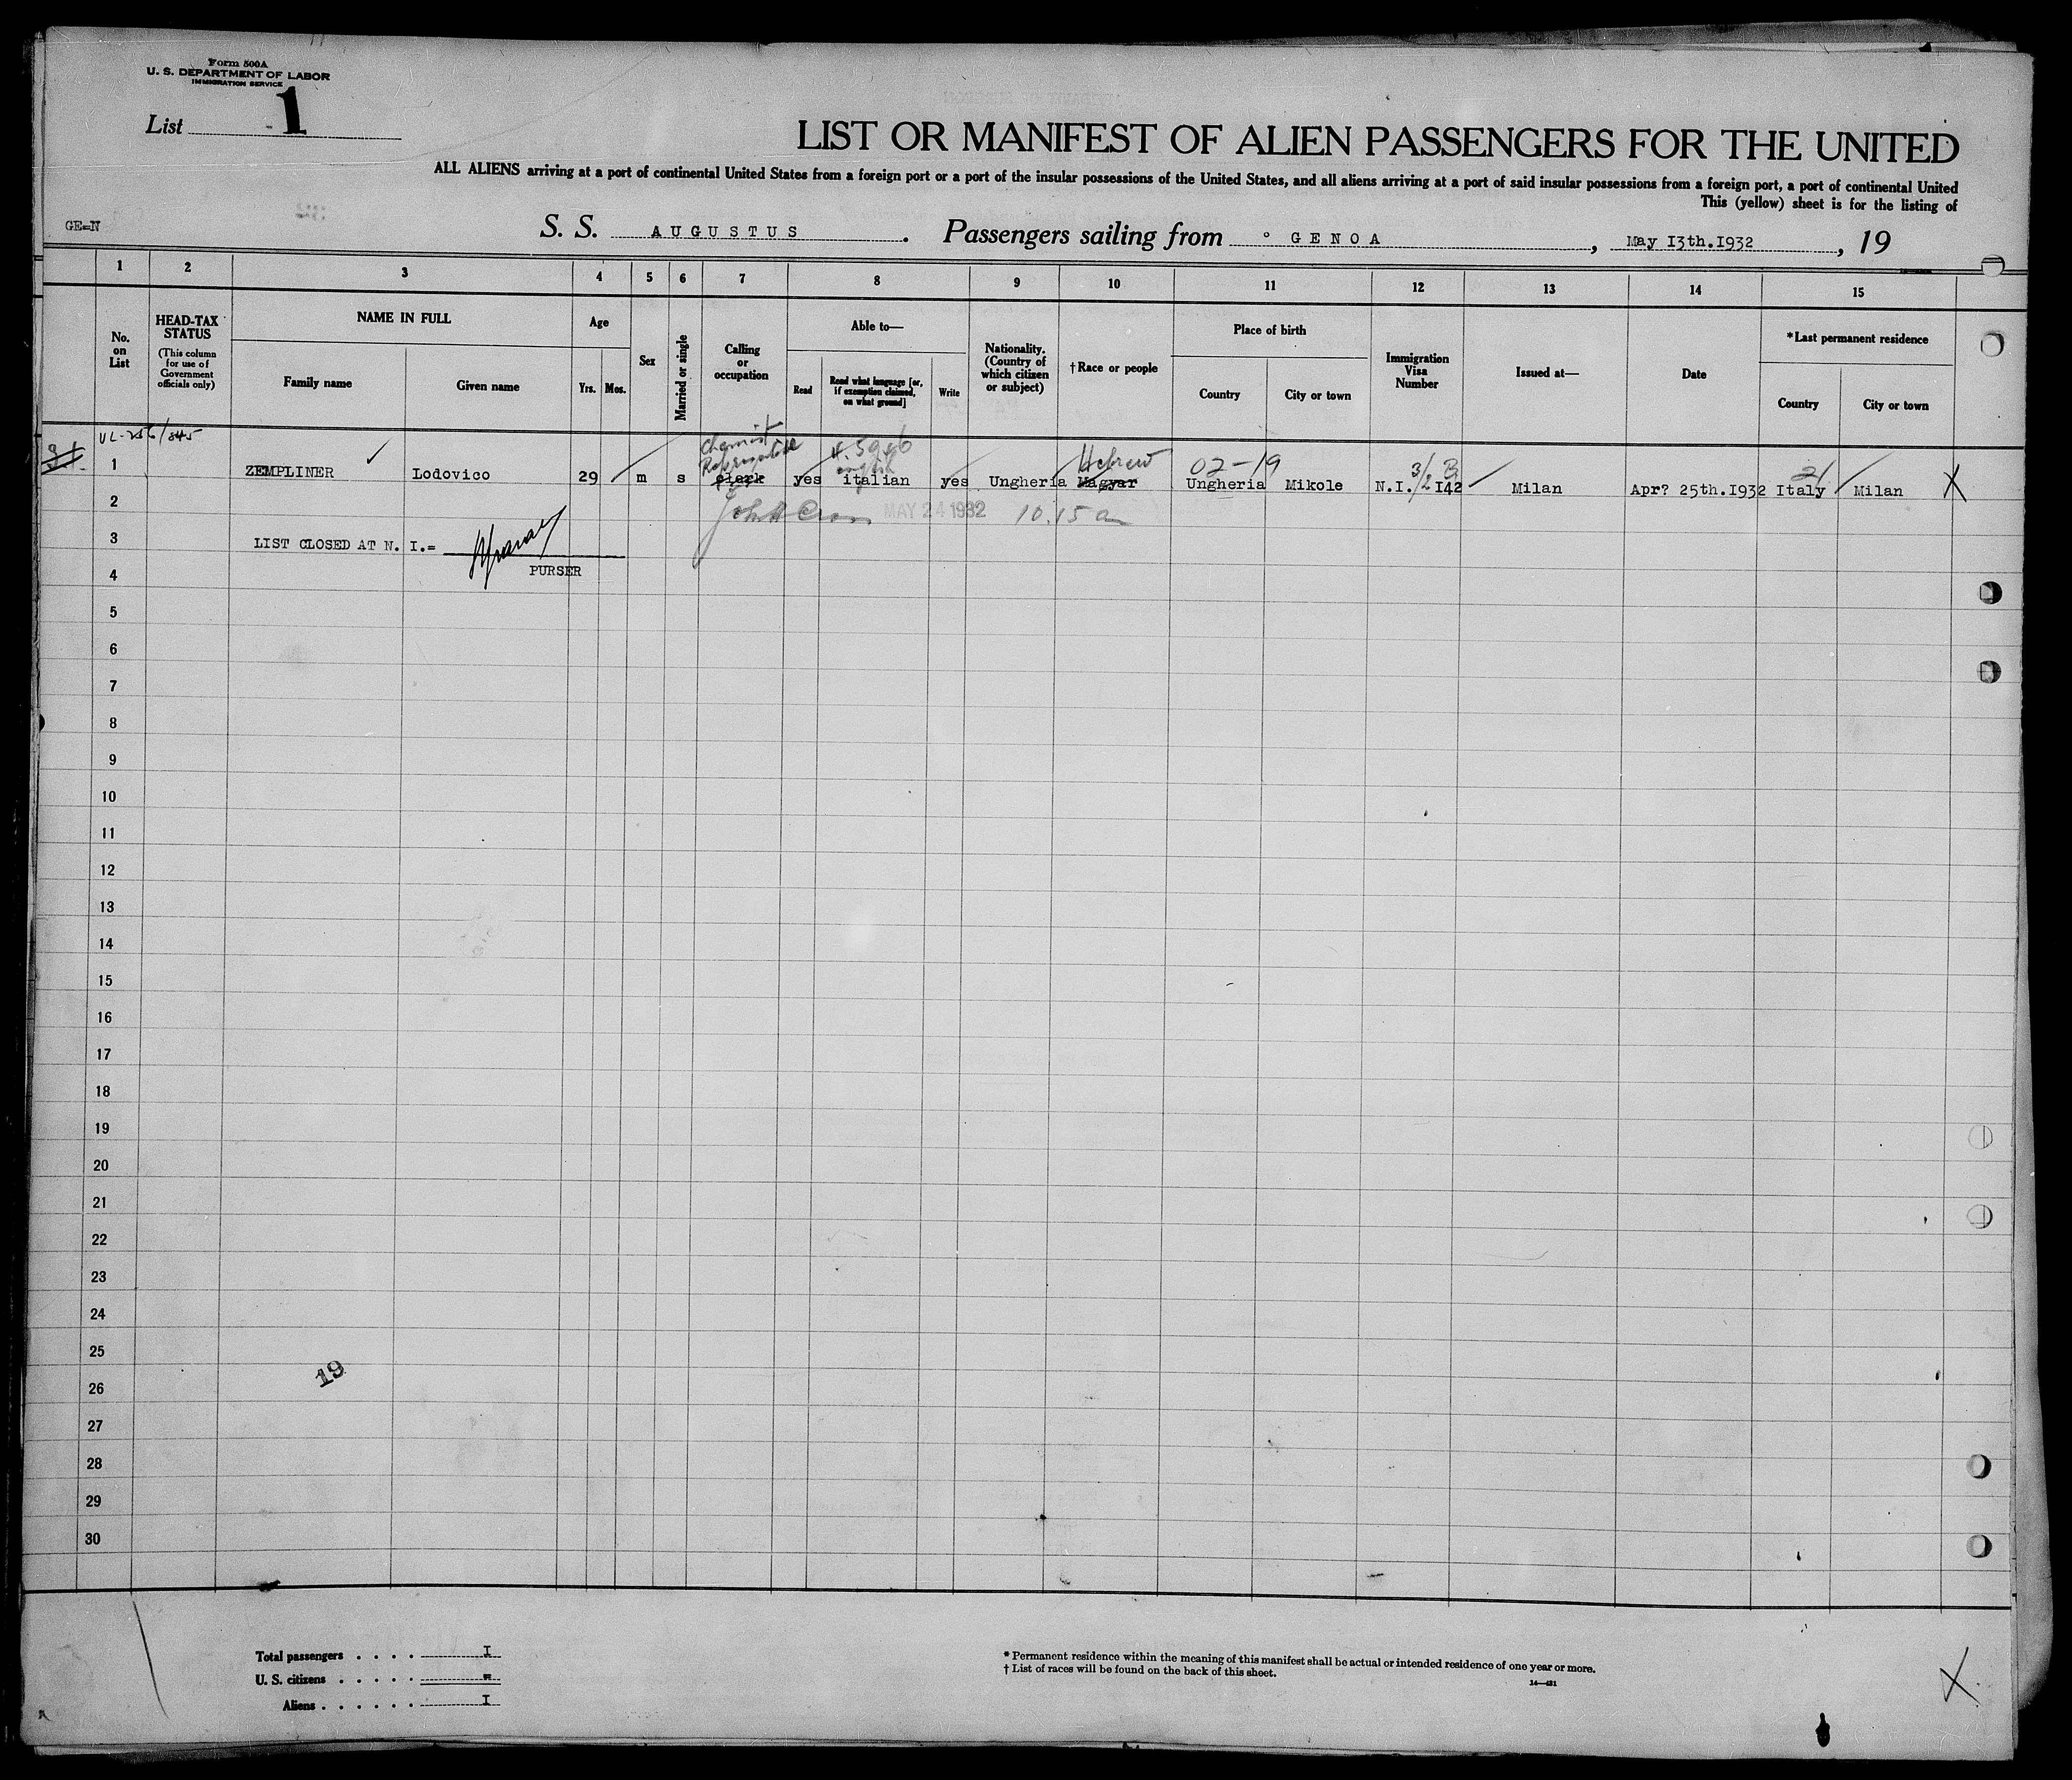 Form 500A
U. S. DEPARTMENT OF LABOR
IMMIGRATION SERVICE
List 1
LIST OR MANIFEST OF ALIEN PASSENGERS FOR THE UNITED
ALL ALIENS arriving at a port of continental United States from a foreign port or a port of the insular possessions of the United States, and all aliens arriving at a port of said insular possessions from a foreign port, a port of continental United
This (yellow) sheet is for the listing of
GE=N
S. S. AUGUSTUS. Passengers sailing from GENOA, May I3th.I932, 19
1 2 3 4 5 6 7 8 9 10 11 12 13 14 15
No. on List
HEAD-TAX STATUS
(This column for use of Government officials only)
NAME IN FULL
Family name
Given name
Age
Yrs. Mos.
Sex
Married or single
Calling or occupation
Able to—
Read
Read what language [or, if exemption claimed, on what ground]
Write
Nationality. (Country of which citizen or subject)
†Race or people
Place of birth
Country
City or town
Immigration Visa Number
Issued at—
Date
*Last permanent residence
Country
City or town
Chemist
english
Hebrew
02-19
1 ZEMPLINER Lodovico 29 m s clerk yes italian yes Ungheria Magyar Ungheria Mikole N.I. I42 Milan Apr? 25th.I932 Italy Milan X
2
MAY 24 1932 10.15 a
3 LIST CLOSED AT N. I.=
PURSER
4
5
6
7
8
9
10
11
12
13
14
15
16
17
18
19
20
21
22
23
24
25
19
26
27
28
29
30
Total passengers . . . . I
U. S. citizens . . . . . =
Aliens . . . . . . I
* Permanent residence within the meaning of this manifest shall be actual or intended residence of one year or more.
† List of races will be found on the back of this sheet.
14—431
X